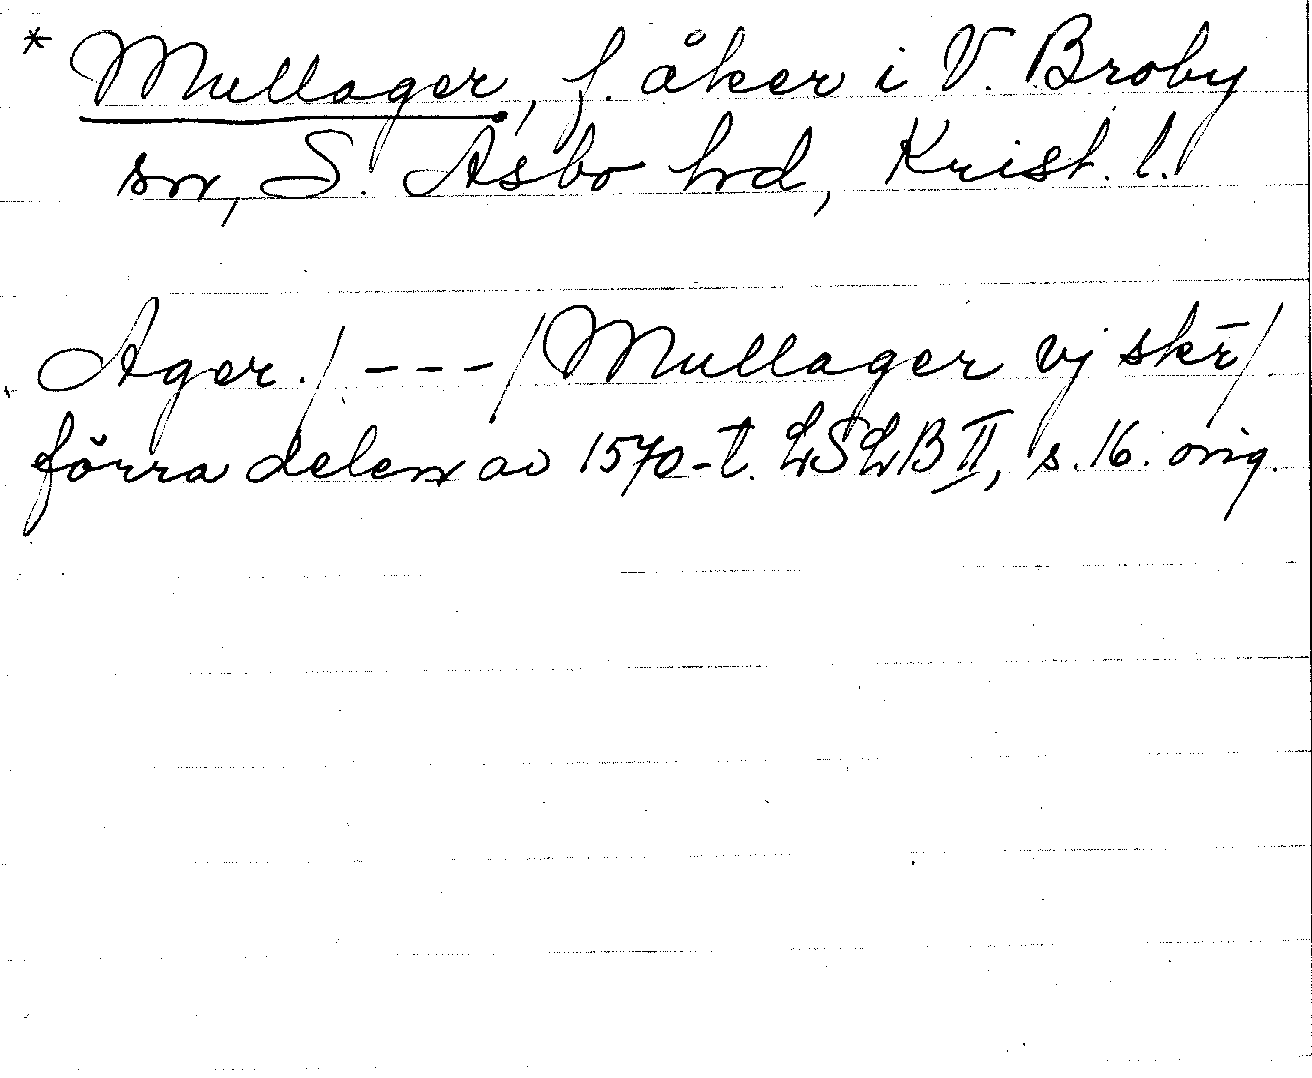 * Mullager, f. åker i V. Broby
sn, S. Åsbo hd, Krist. l.
Ager. / --- / Mullager vj skr̄ /
förra delen av 1570-t. LSLB II, s. 16. orig.